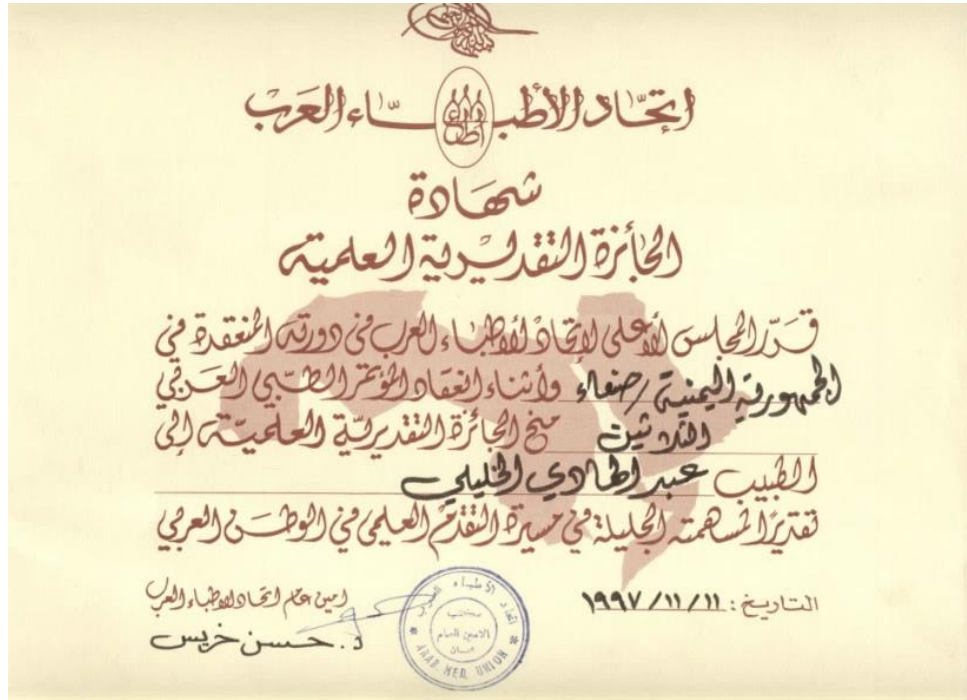 اتحاد الأطباء العرب
شهادة
الجائزة التقديرية العلمية
قرر المجلس الأعلى لاتحاد الأطباء العرب في دورته المنعقدة في
الجمهورية اليمنية / صنعاء وأثناء انعقاد المؤتمر الطبي العربي
الثلاثين منح الجائزة التقديرية العلمية إلى
الطبيب عبد الهادي الخليلي
تقديرًا لمساهمته الجليلة في مسيرة التقدم العلمي في الوطن العربي
التاريخ: ١٩٩٧/١١/١١
امين عام اتحاد الاطباء العرب
د. حسن خريس
اتحاد الأطباء العرب
مكتب
الامين العام
عمان
ARAB MED. UNION